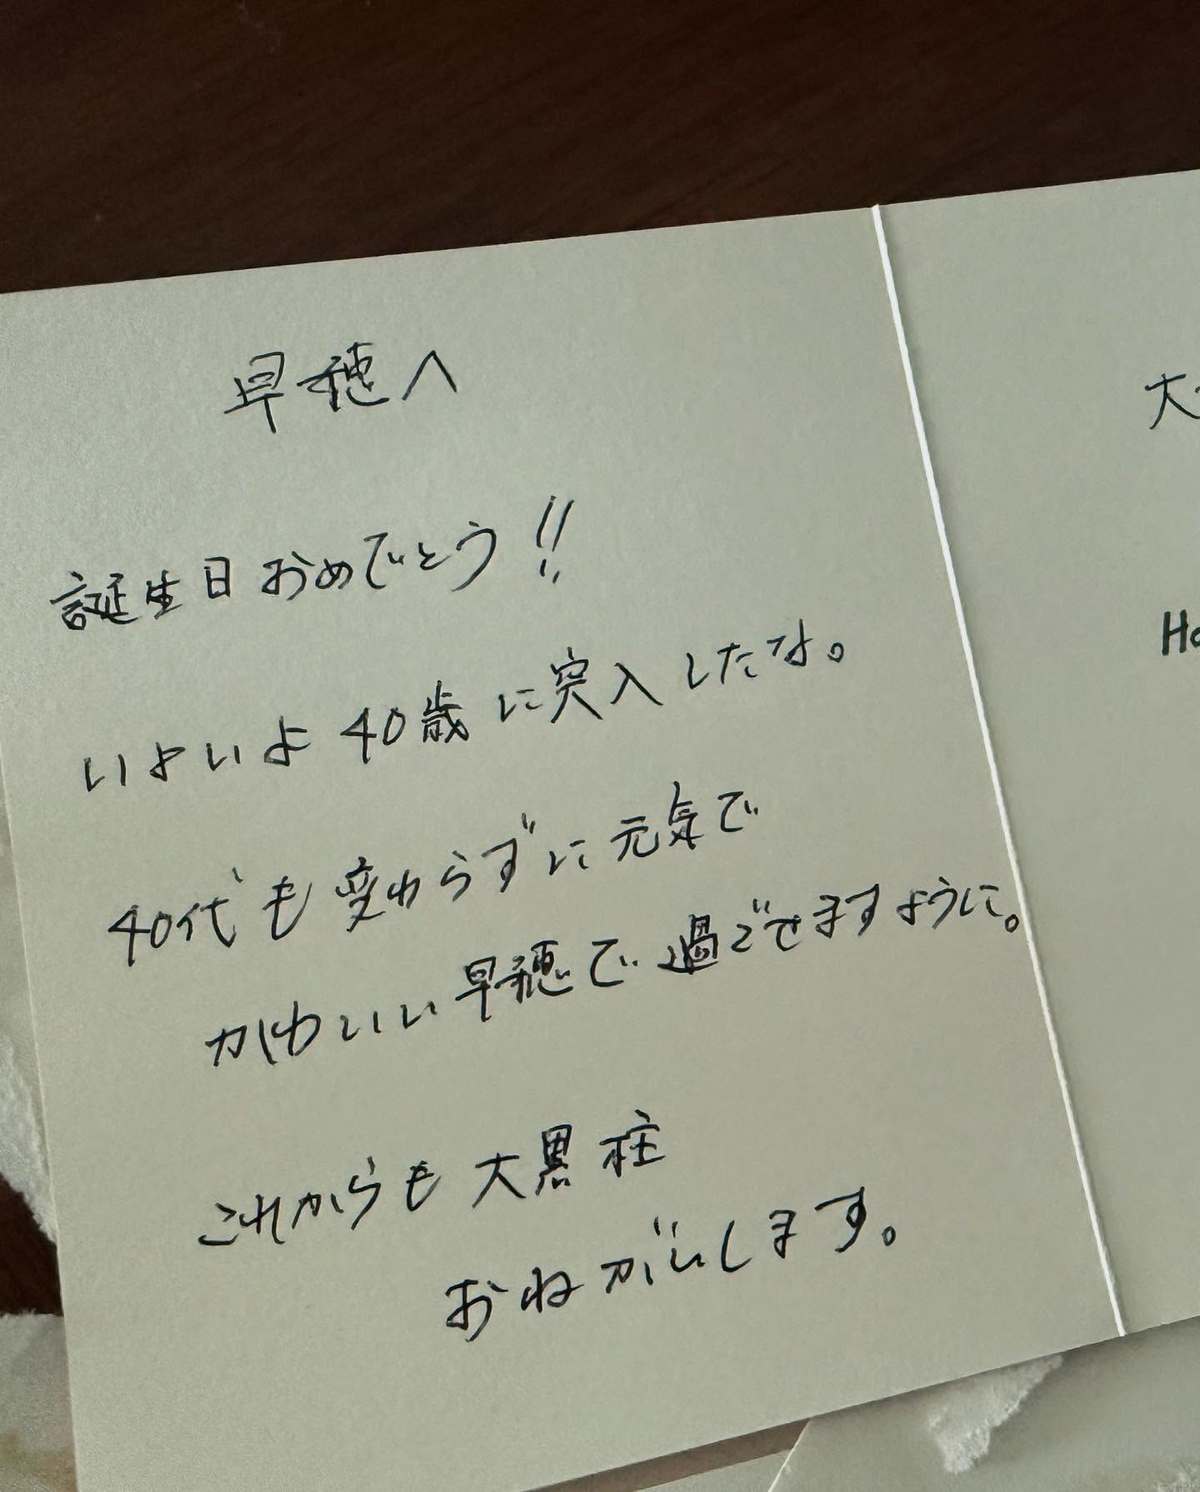 早穂へ
誕生日おめでとう!!
いよいよ40歳に突入したな。
40代も変わらずに元気で
かわいい早穂で過ごせますように。
これからも大黒柱
おねがいします。
大
Ha